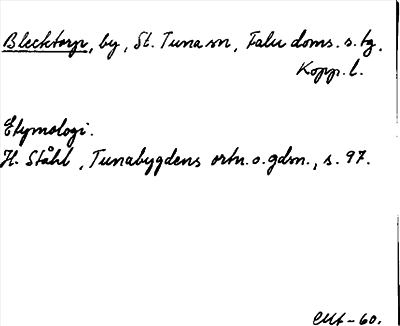 Blecktorp, by, St. Tuna sn, Falu doms. s. tg.
Kopp. l.
Etymologi.
H. Ståhl, Tunabygdens ortn. o. gdsn., s. 97.
-60.